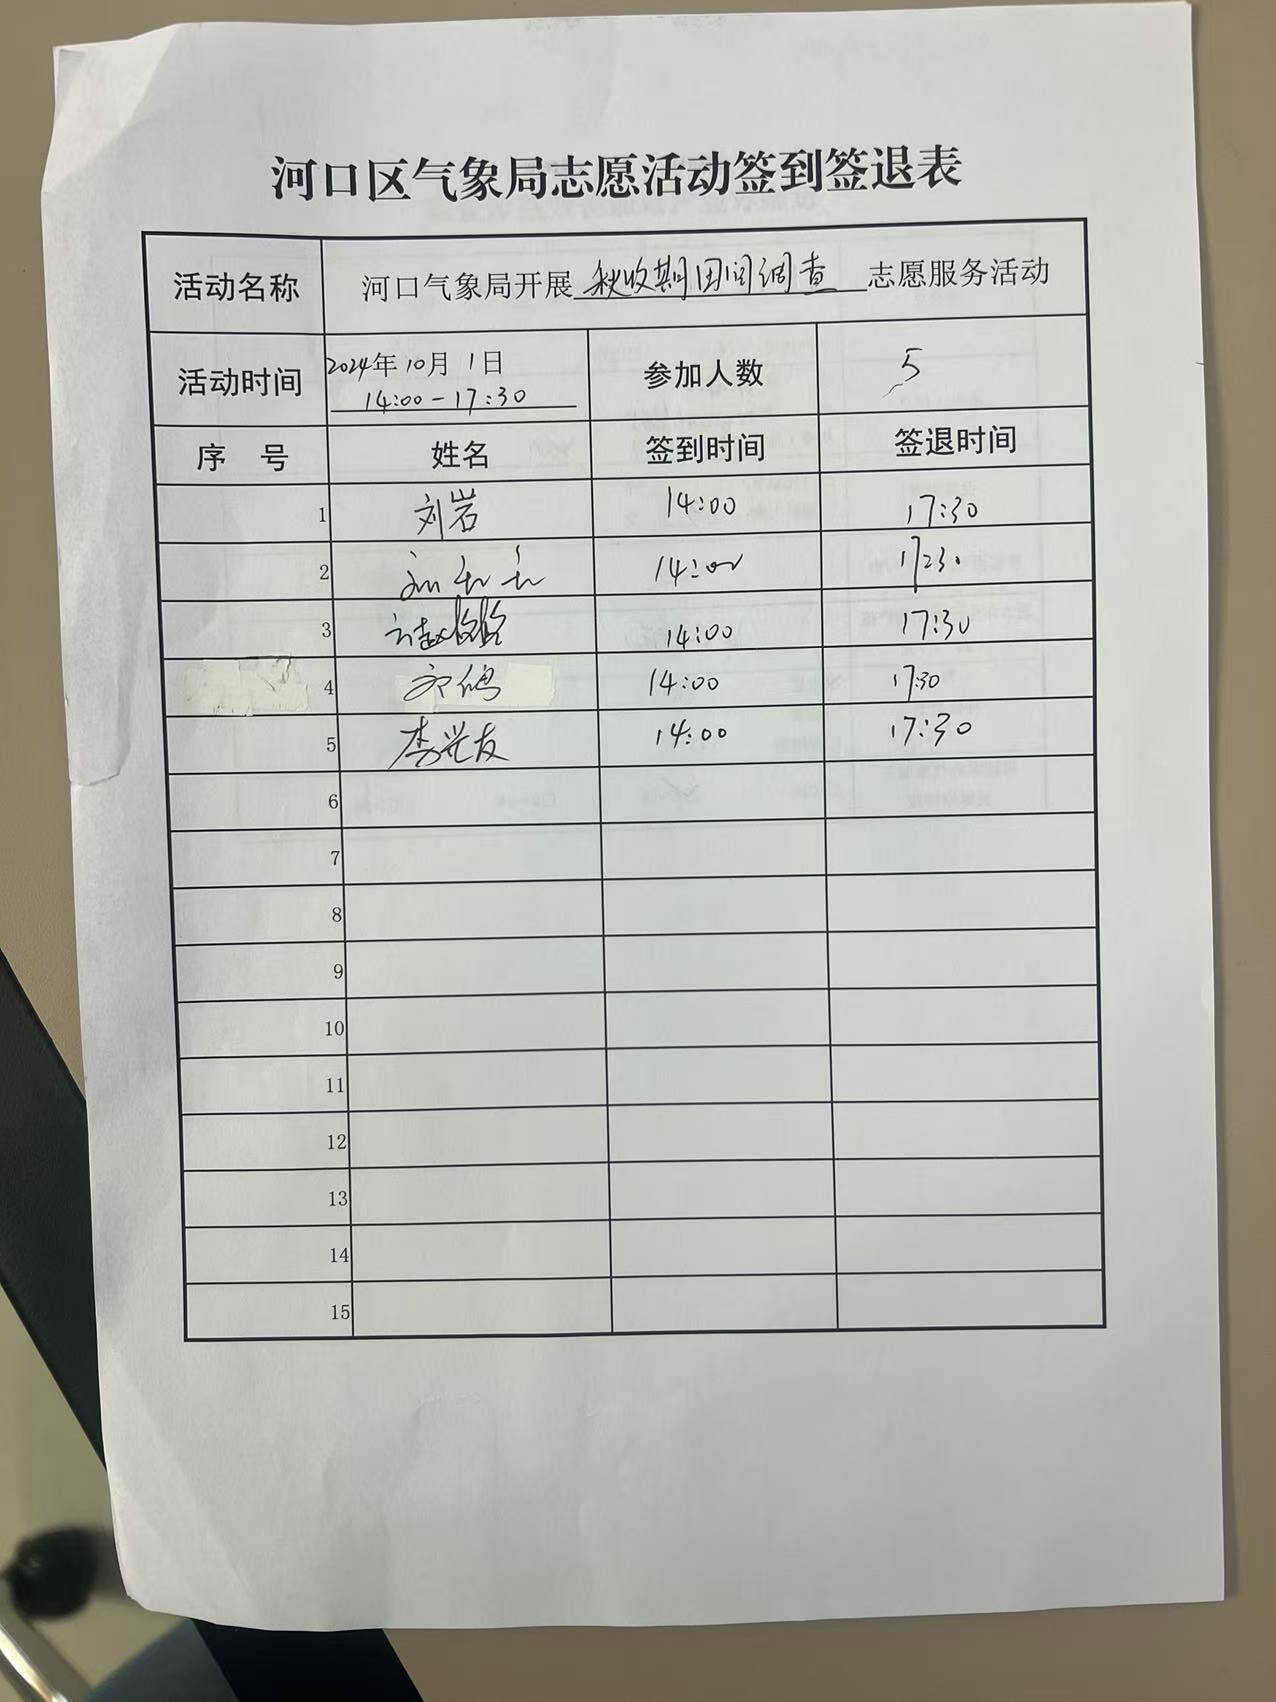 河口区气象局志愿活动签到签退表
活动名称 河口气象局开展 秋收期田间调查 志愿服务活动
活动时间 2024年10月1日 14:00-17:30 参加人数 5
序 号 姓名 签到时间 签退时间
1 刘岩 14:00 17:30
2 14:00 17:30
3 14:00 17:30
4 14:00 17:30
5 李兴友 14:00 17:30
6
7
8
9
10
11
12
13
14
15